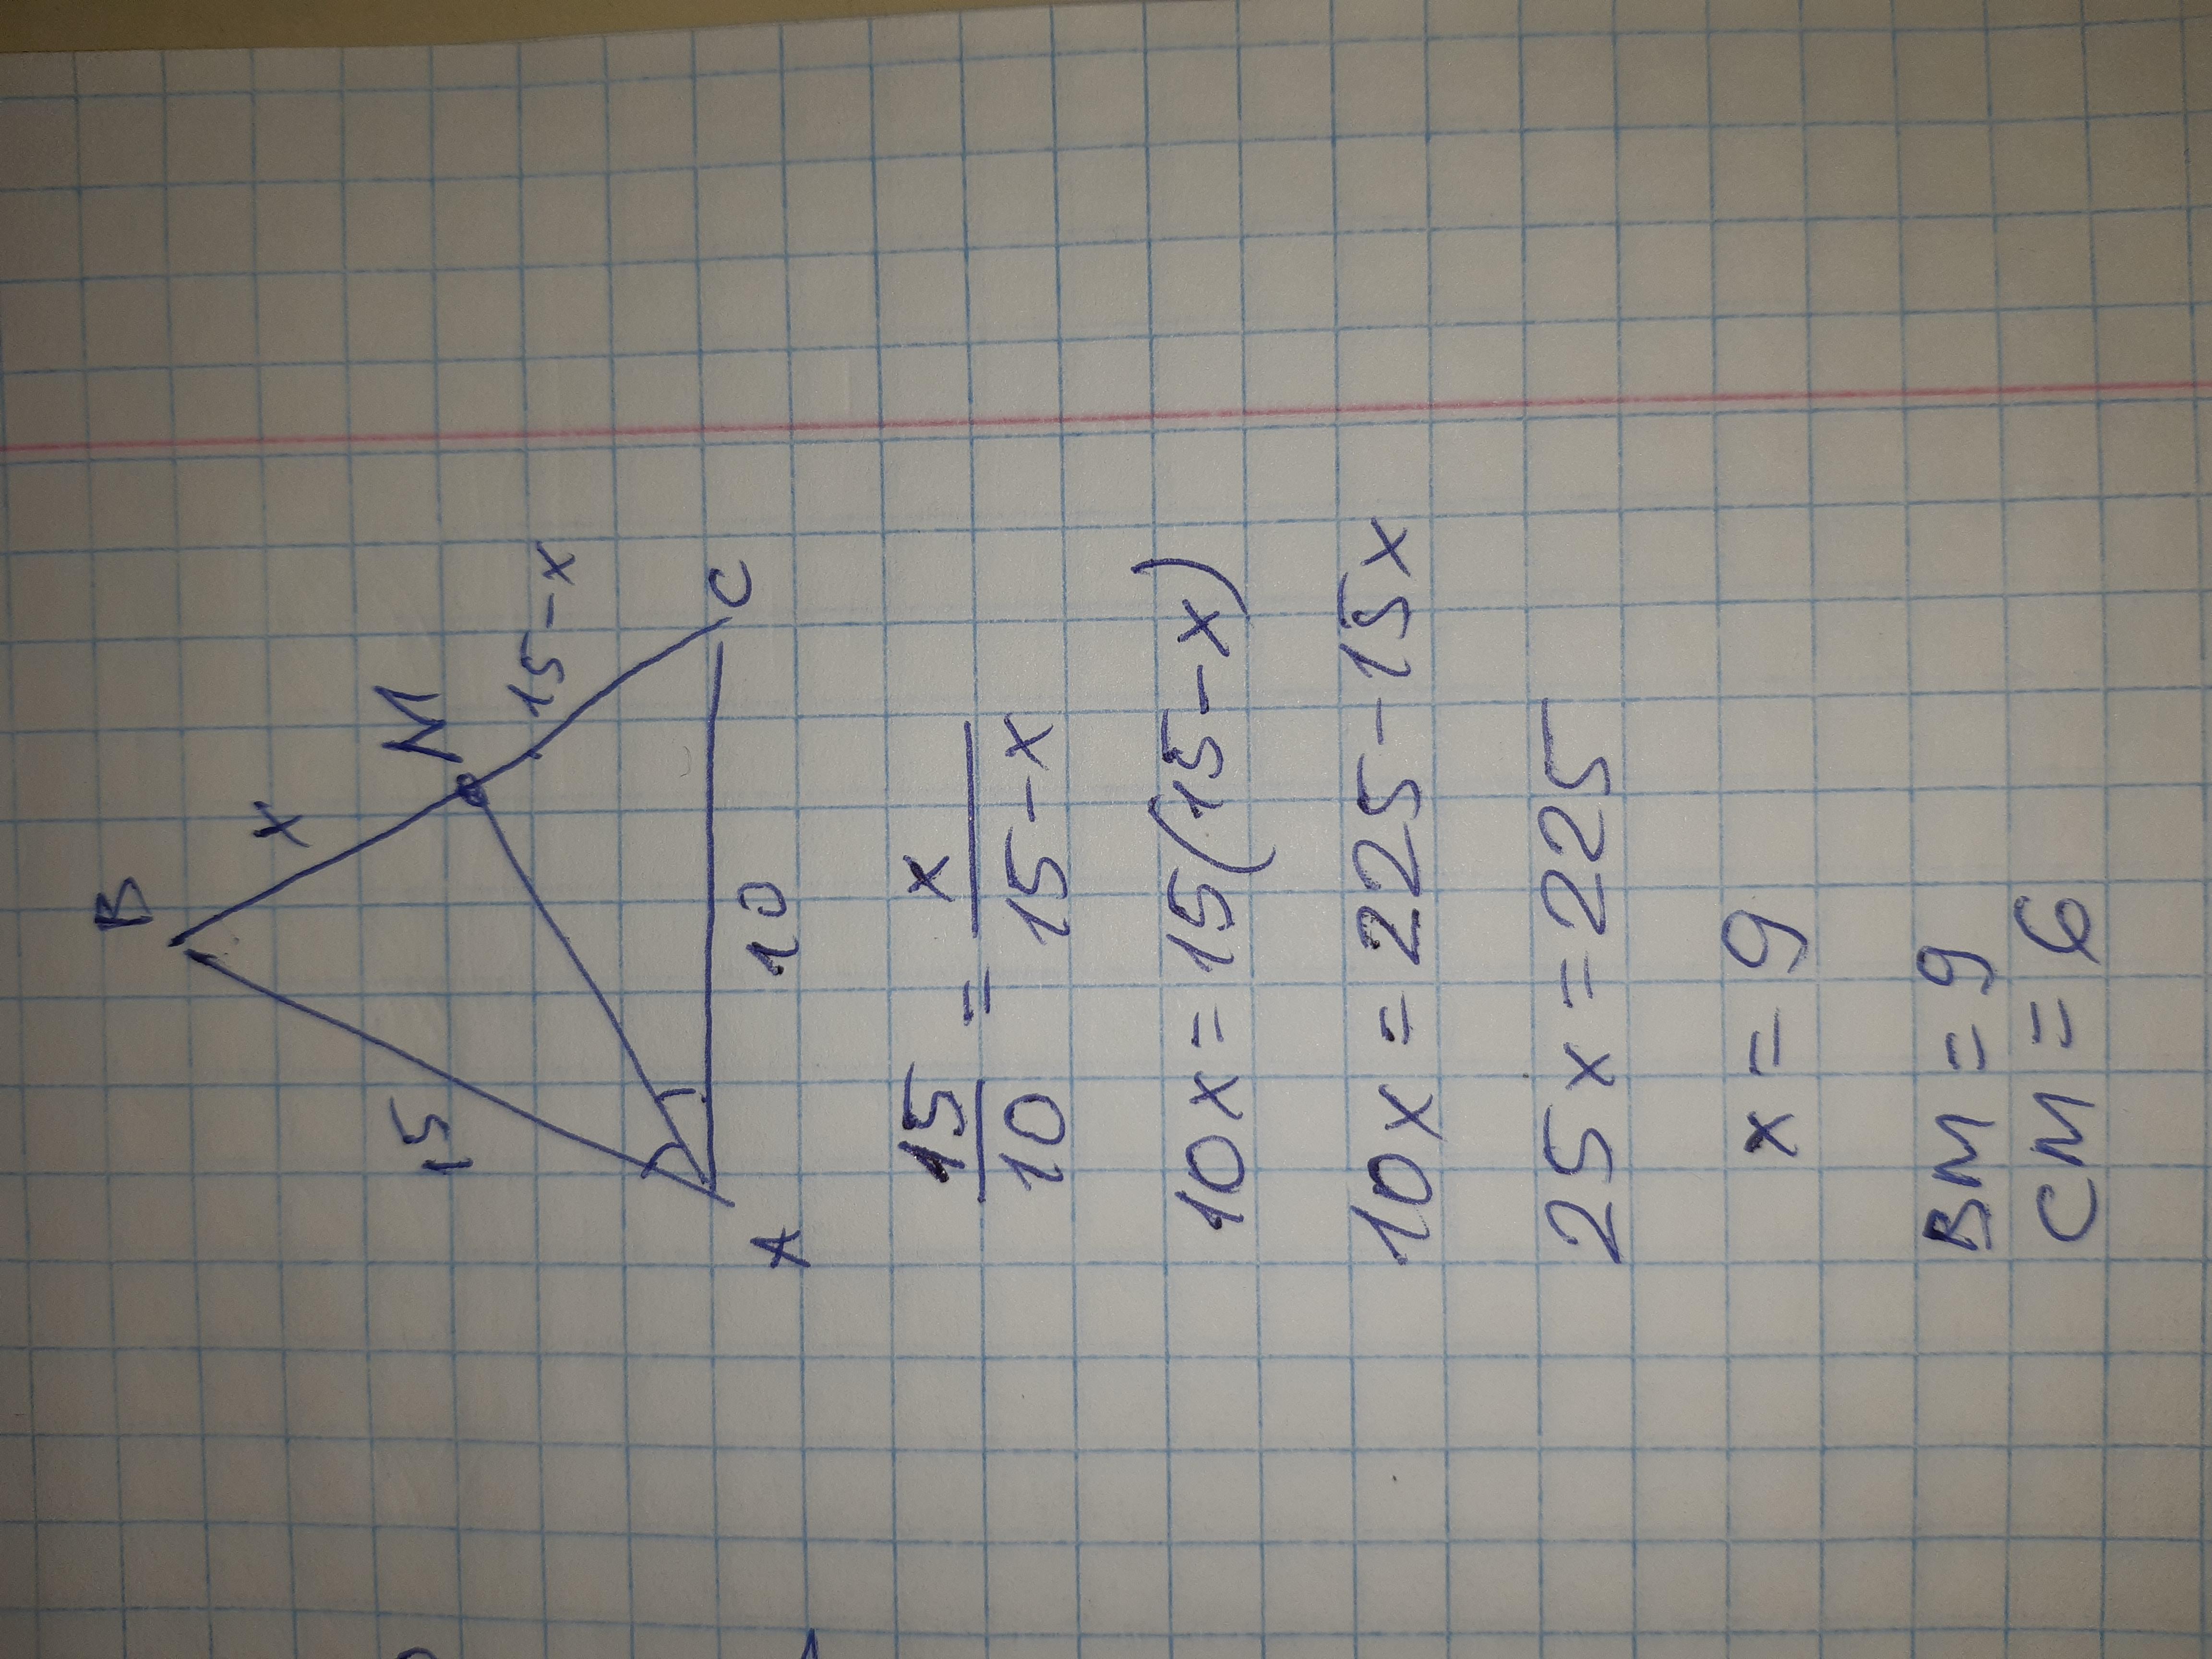 B
x
M
15
15-x
A
10
C
15/10 = x/15-x
10x=15(15-x)
10x=225-15x
25x=225
x=9
BM=9
CM=6